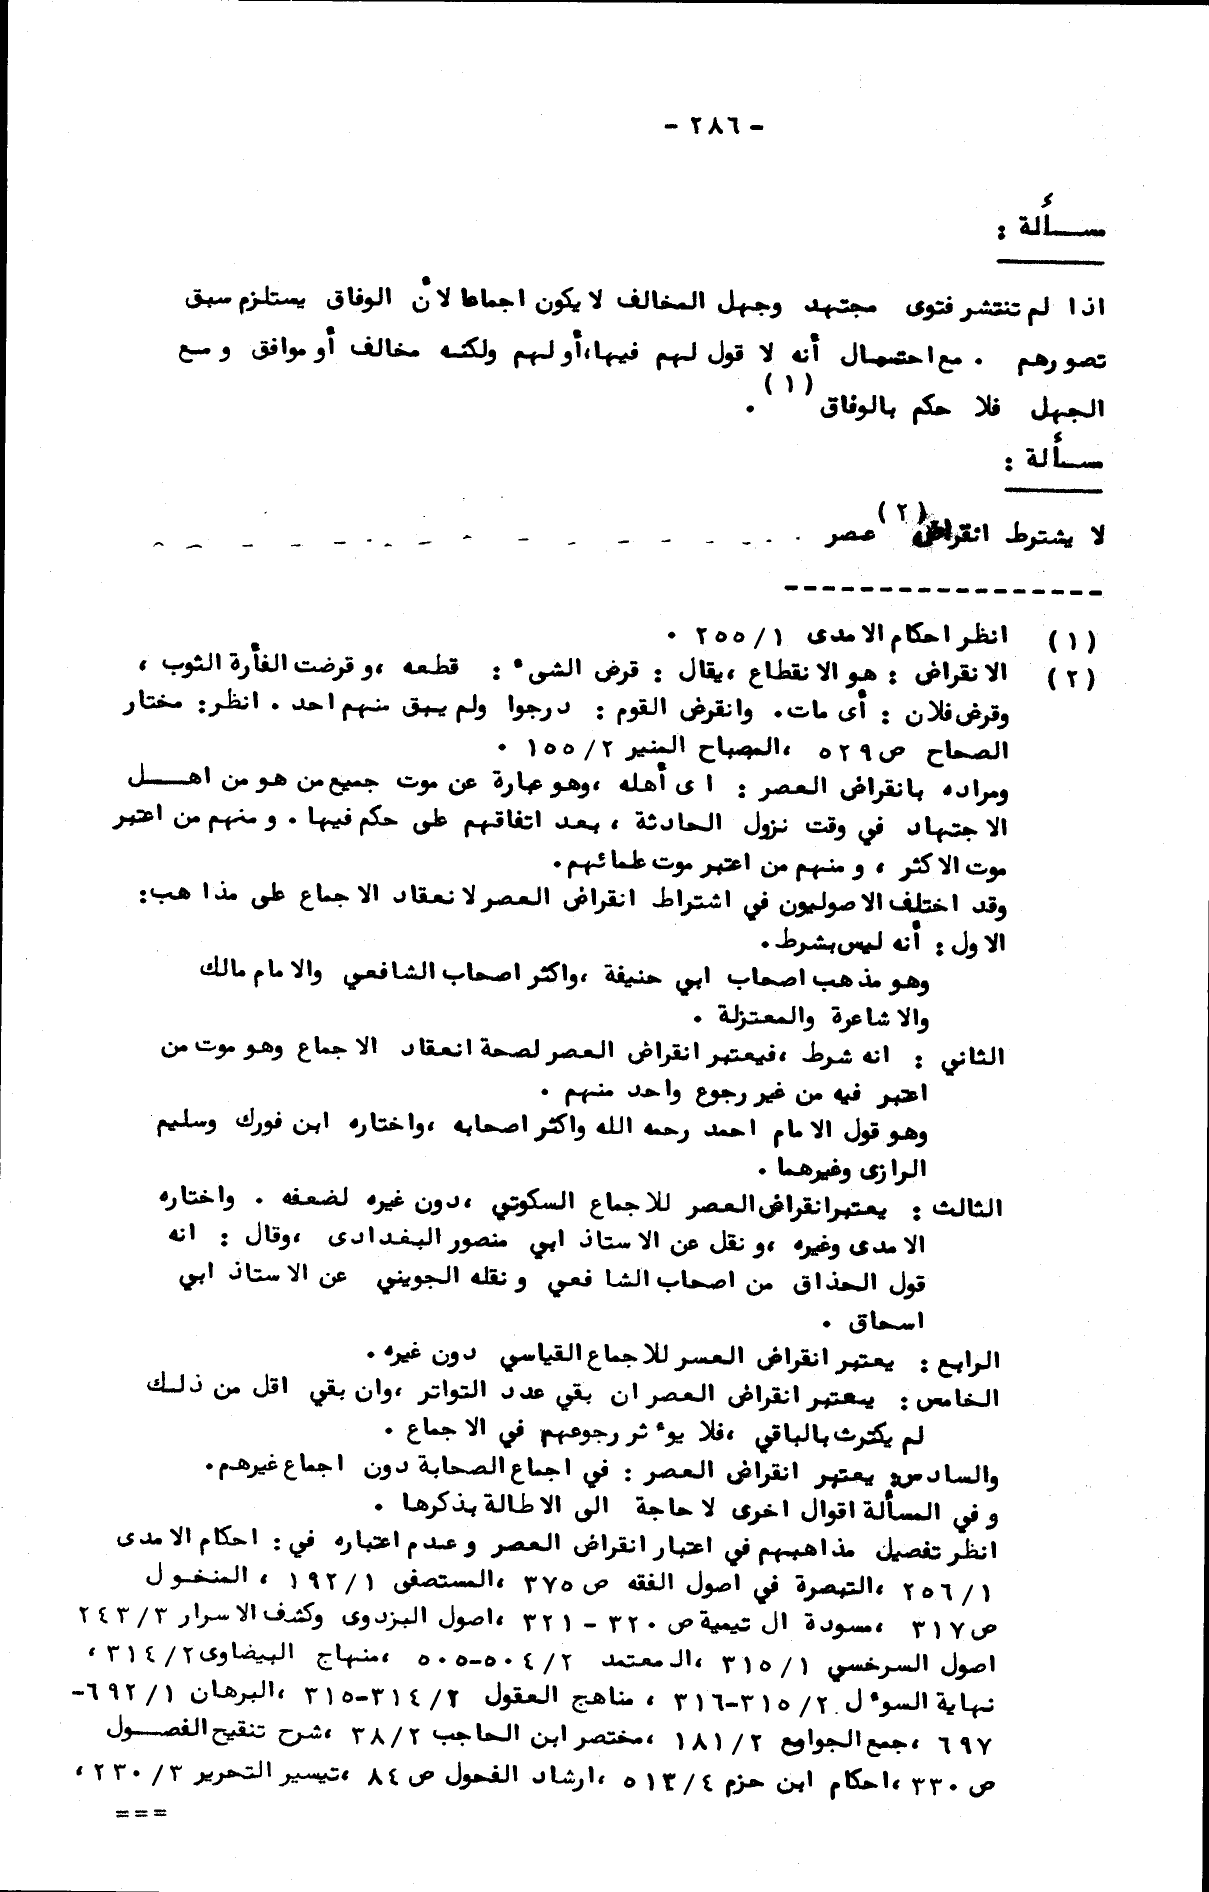 - ٢٨٦ -
مســألة :
اذا لم تنتشر فتوى مجتهد وجهل المخالف لا يكون اجماعا لأن الوفاق يستلزم سبق
تصورهم . مع احتمال أنه لا قول لهم فيها،أو لهم ولكنه مخالف أو موافق ومع
الجهل فلا حكم بالوفاق (١) .
مسـألة :
لا يشترط انقراض (٢) عصر
(١) انظر احكام الامدى ١/ ٢٥٥ .
(٢) الانقراض : هو الانقطاع ،يقال : قرض الشىء : قطعه ،و قرضت الفأرة الثوب ،
وقرض فلان : أى مات. وانقرض القوم : درجوا ولم يبق منهم احد . انظر: مختار
الصحاح ص ٥٢٩ ،المصباح المنير ٢/ ١٥٥ .
ومراده بانقراض العصر : اى أهله ،وهو عبارة عن موت جميع من هو من اهــل
الاجتهاد في وقت نزول الحادثة ، بعد اتفاقهم على حكم فيها . و منهم من اعتبر
موت الاكثر ، و منهم من اعتبر موت علمائهم.
وقد اختلف الاصوليون في اشتراط انقراض العصر لانعقاد الاجماع على مذاهب:
الاول : أنه ليس بشرط.
وهو مذهب اصحاب ابي حنيفة ،واكثر اصحاب الشافعي والامام مالك
والاشاعرة والمعتزلة .
الثاني : انه شرط ،فيعتبر انقراض العصر لصحة انعقاد الاجماع وهو موت من
اعتبر فيه من غير رجوع واحد منهم .
وهو قول الامام احمد رحمه الله واكثر اصحابه ،واختاره ابن فورك وسليم
الرازى وغيرهما .
الثالث : يعتبر انقراض العصر للاجماع السكوتي ،دون غيره لضعفه . واختاره
الامدى وغيره ،و نقل عن الاستاذ ابي منصور البغدادى ،وقال : انه
قول الحذاق من اصحاب الشافعي و نقله الجويني عن الاستاذ ابي
اسحاق .
الرابع : يعتبر انقراض العسر للاجماع القياسي دون غيره .
الخامس : يعتبر انقراض العصر ان بقي عدد التواتر ،وان بقي اقل من ذلـك
لم يكترث بالباقي ،فلا يوءثر رجوعهم في الاجماع .
والسادس: يعتبر انقراض العصر : في اجماع الصحابة دون اجماع غيرهم.
و في المسألة اقوال اخرى لا حاجة الى الاطالة بذكرها .
انظر تفصيل مذاهبهم في اعتبار انقراض العصر و عدم اعتباره في : احكام الامدى
١/ ٢٥٦ ،التبصرة في اصول الفقه ص ٣٧٥ ،المستصفى ١/ ١٩٢ ، المنخـول
ص ٣١٧ ،مسودة ال تيمية ص ٣٢٠ - ٣٢١ ،اصول البزدوى وكشف الاسرار ٣/ ٢٤٣
اصول السرخسي ١/ ٣١٥ ،المعتمد ٢/ ٥٠٤-٥٠٥ ،منهاج البيضاوى ٢/ ٣١٤ ،
نهاية السوءل ٢/ ٣١٥-٣١٦ ، مناهج العقول ٢/ ٣١٤-٣١٥ ،البرهان ١/ ٦٩٢-
٦٩٧ ،جمع الجوامع ٢/ ١٨١ ،مختصر ابن الحاجب ٢/ ٣٨ ،شرح تنقيح الفصــول
ص ٣٣٠ ،احكام ابن حزم ٤/ ٥١٣ ،ارشاد الفحول ص ٨٤ ،تيسير التحرير ٣/ ٢٣٠ ،
===